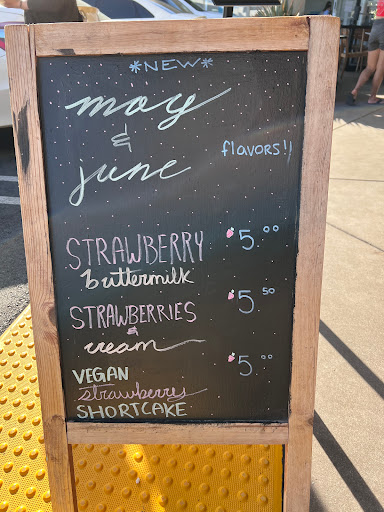 *NEW*
may
&
june
flavors!
STRAWBERRY $5.00
buttermilk
STRAWBERRIES $5.50
&
cream
VEGAN $5.00
strawberry
SHORTCAKE